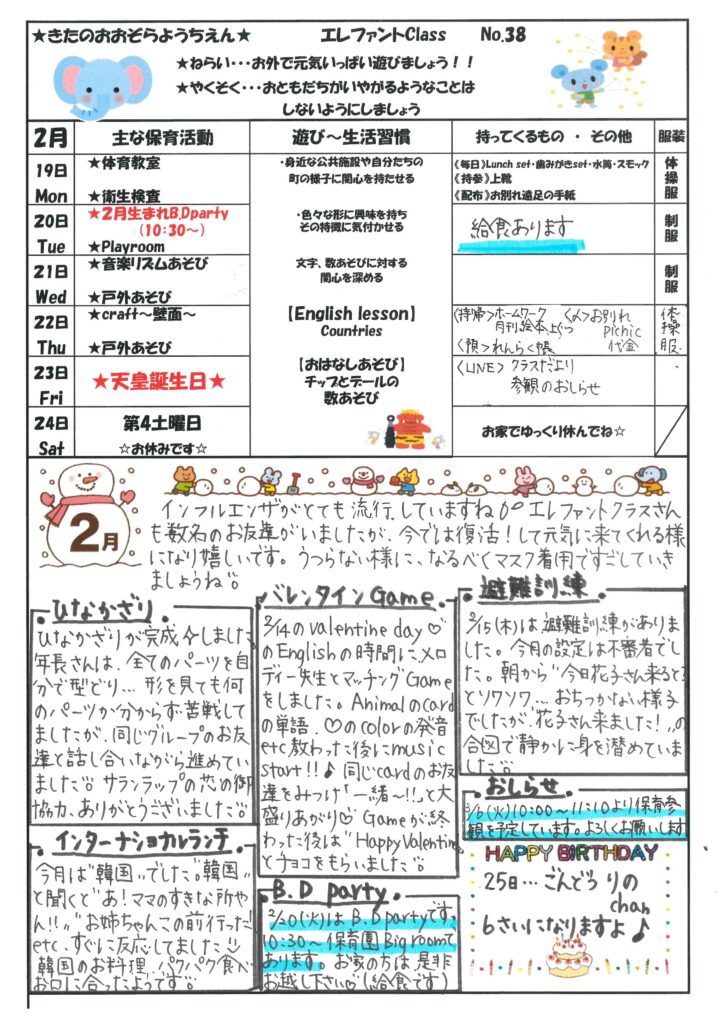 ★きたのおおぞらようちえん★ エレファントClass No.38
★ねらい・・・お外で元気いっぱい遊びましょう！！
★やくそく・・・おともだちがいやがるようなことは
しないようにしましょう
2月 主な保育活動 遊び～生活習慣 持ってくるもの ・ その他 服装
19日 Mon
★体育教室
★衛生検査
・身近な公共施設や自分たちの
町の様子に関心を持たせる
《毎日》Lunch set・歯みがきset・水筒・スモック
《持参》上靴
《配布》お別れ遠足の手紙
体操服
20日 Tue
★2月生まれB,Dparty
（10:30～）
★Playroom
・色々な形に興味を持ち
その特徴に気付かせる
給食あります
制服
21日 Wed
★音楽リズムあそび
★戸外あそび
文字、数あそびに対する
関心を深める
制服
22日 Thu
★craft～壁面～
★戸外あそび
【English lesson】
Countries
〈持帰〉ホームワーク
月刊絵本、上ぐつ
〈〆〉お別れ
picnic
代金
〈預〉れんらく帳
体操服
23日 Fri
★天皇誕生日★
【おはなしあそび】
チップとデールの
数あそび
〈LINE〉クラスだより
参観のおしらせ
24日 Sat
第4土曜日
☆お休みです☆
お家でゆっくり休んでね☆
2月
インフルエンザがとても流行していますね エレファントクラスさん
も数名のお友達がいましたが、今では復活！して元気に来てくれる様
になり嬉しいです。うつらない様に、なるべくマスク着用ですごしていき
ましょうね
ひなかざり
ひなかざりが完成しました
年長さんは、全てのパーツを自
分で型どり… 形を見ても何
のパーツか分からず苦戦して
ましたが、同じグループのお友
達と話し合いながら進めてい
ました サランラップの芯の御
協力、ありがとうございました
インターナショナルランチ
今月は"韓国"でした "韓国"
と聞くと"あ！ママのすきな所や
ん！！" "お姉ちゃんこの前行った"
etc、すぐに反応してました
韓国のお料理、パクパク食べ
お口に合ったようです
バレンタインGame
2/14のvalentine day♡
のEnglishの時間に、メロ
ディー先生とマッチングGame
をしました。Animalのcard
の単語、♡のcolorの発音
etc教わった後にmusic
start!!♪ 同じcardのお友
達をみつけ「一緒〜!!」と大
盛りあがり♡ Gameが終
わった後は"Happy Valentine"
とチョコをもらいました
B.D party
2/20(火)はB.Dpartyです。
10:30〜保育園Big roomで
あります。お家の方は是非
お越し下さい(給食です)
避難訓練
2/15(木)は避難訓練がありま
した。今月の設定は不審者でし
た。朝から"今日花子さん来ると?"
とソワソワ… おちつかない様子
でしたが"花子さん来ました！"の
合図で静かに身を潜めていま
した
おしらせ
3/6(火)10:00〜11:10より保育参
観を予定しています。よろしくお願いします
HAPPY BIRTHDAY
25日… ごんどう りの
chan
6さいになりますよ♪